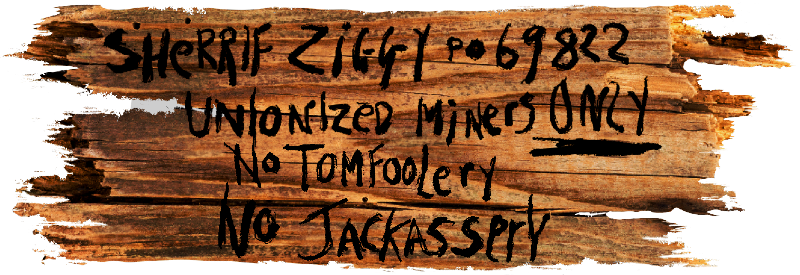 SHERRIF ZIGGY PO69822
UNIONIZED MINERS ONLY
NO TOMFOOLERY
NO JACKASSERY